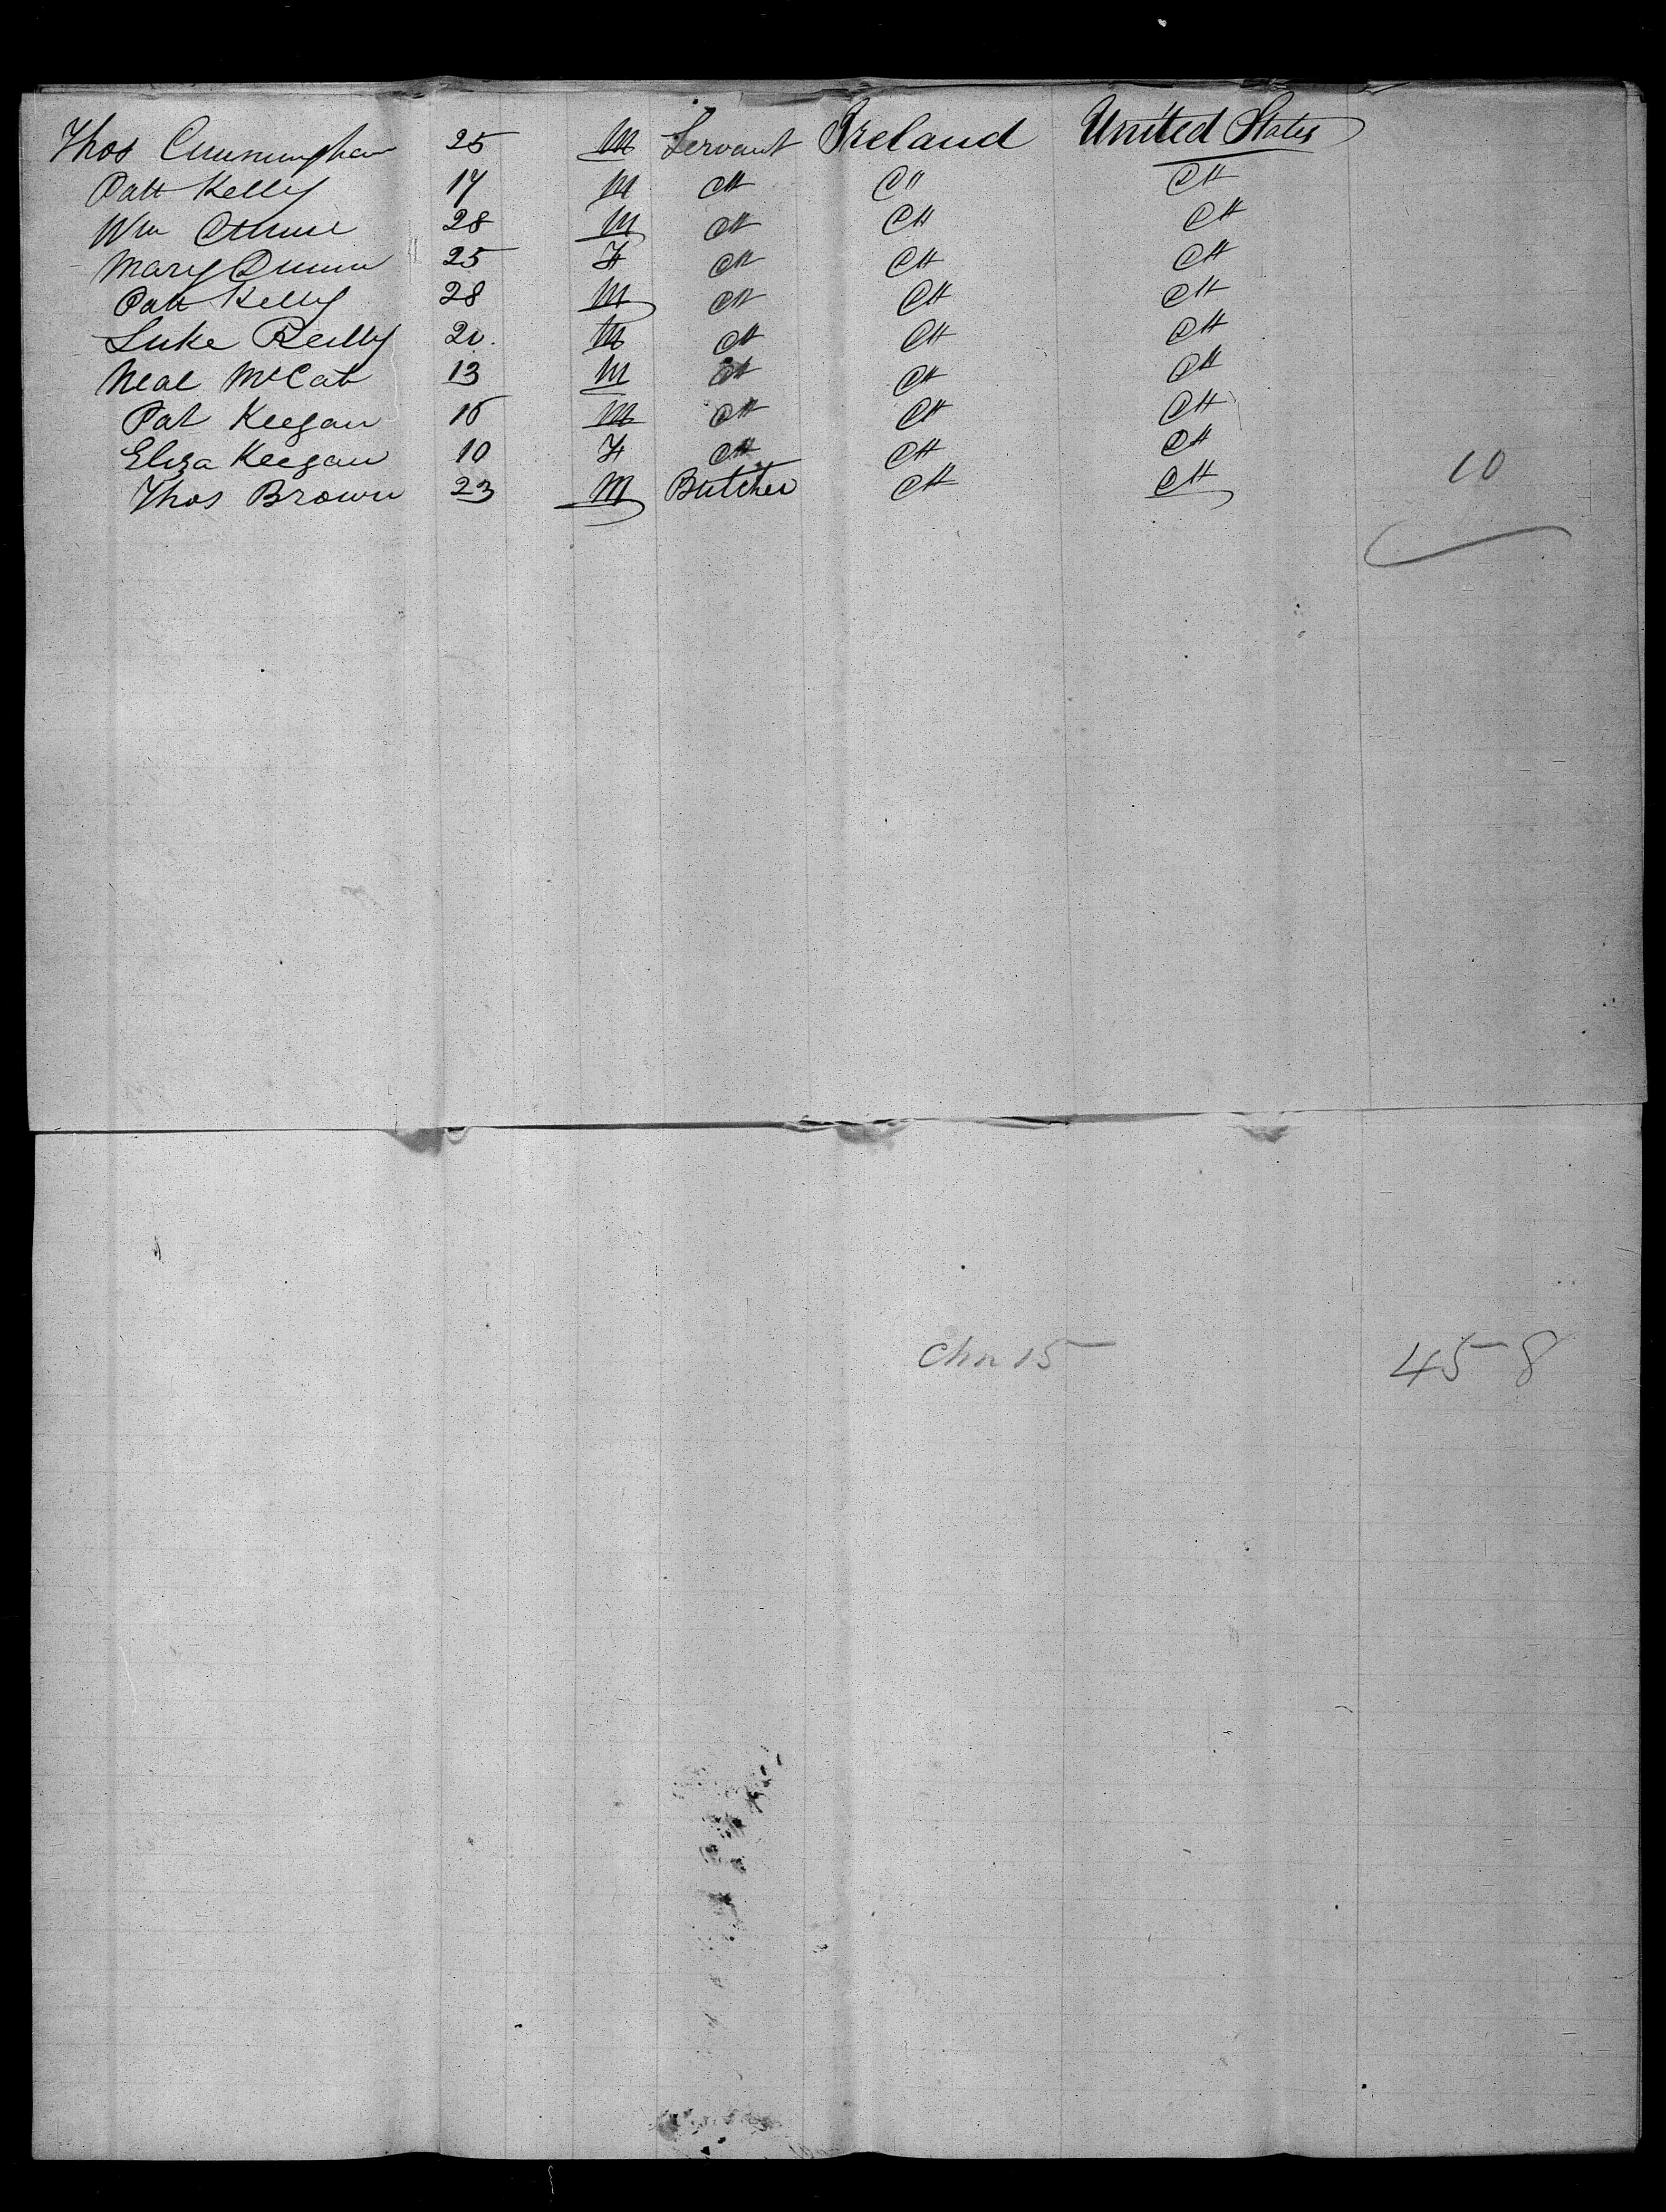 Thos Cunningham 25 M Servant Ireland United States
Patt Kelly 17 M do do do
Wm 28 M do do do
Mary Quinn 25 F do do do
Patt Kelly 28 M do do do
Luke Reilly 20 M do do do
Neal McCab 13 M do do do
Pat Keegan 15 M do do do
Eliza Keegan 10 F do do do
Thos Brown 23 M Butcher do do 10
Chn 15 458